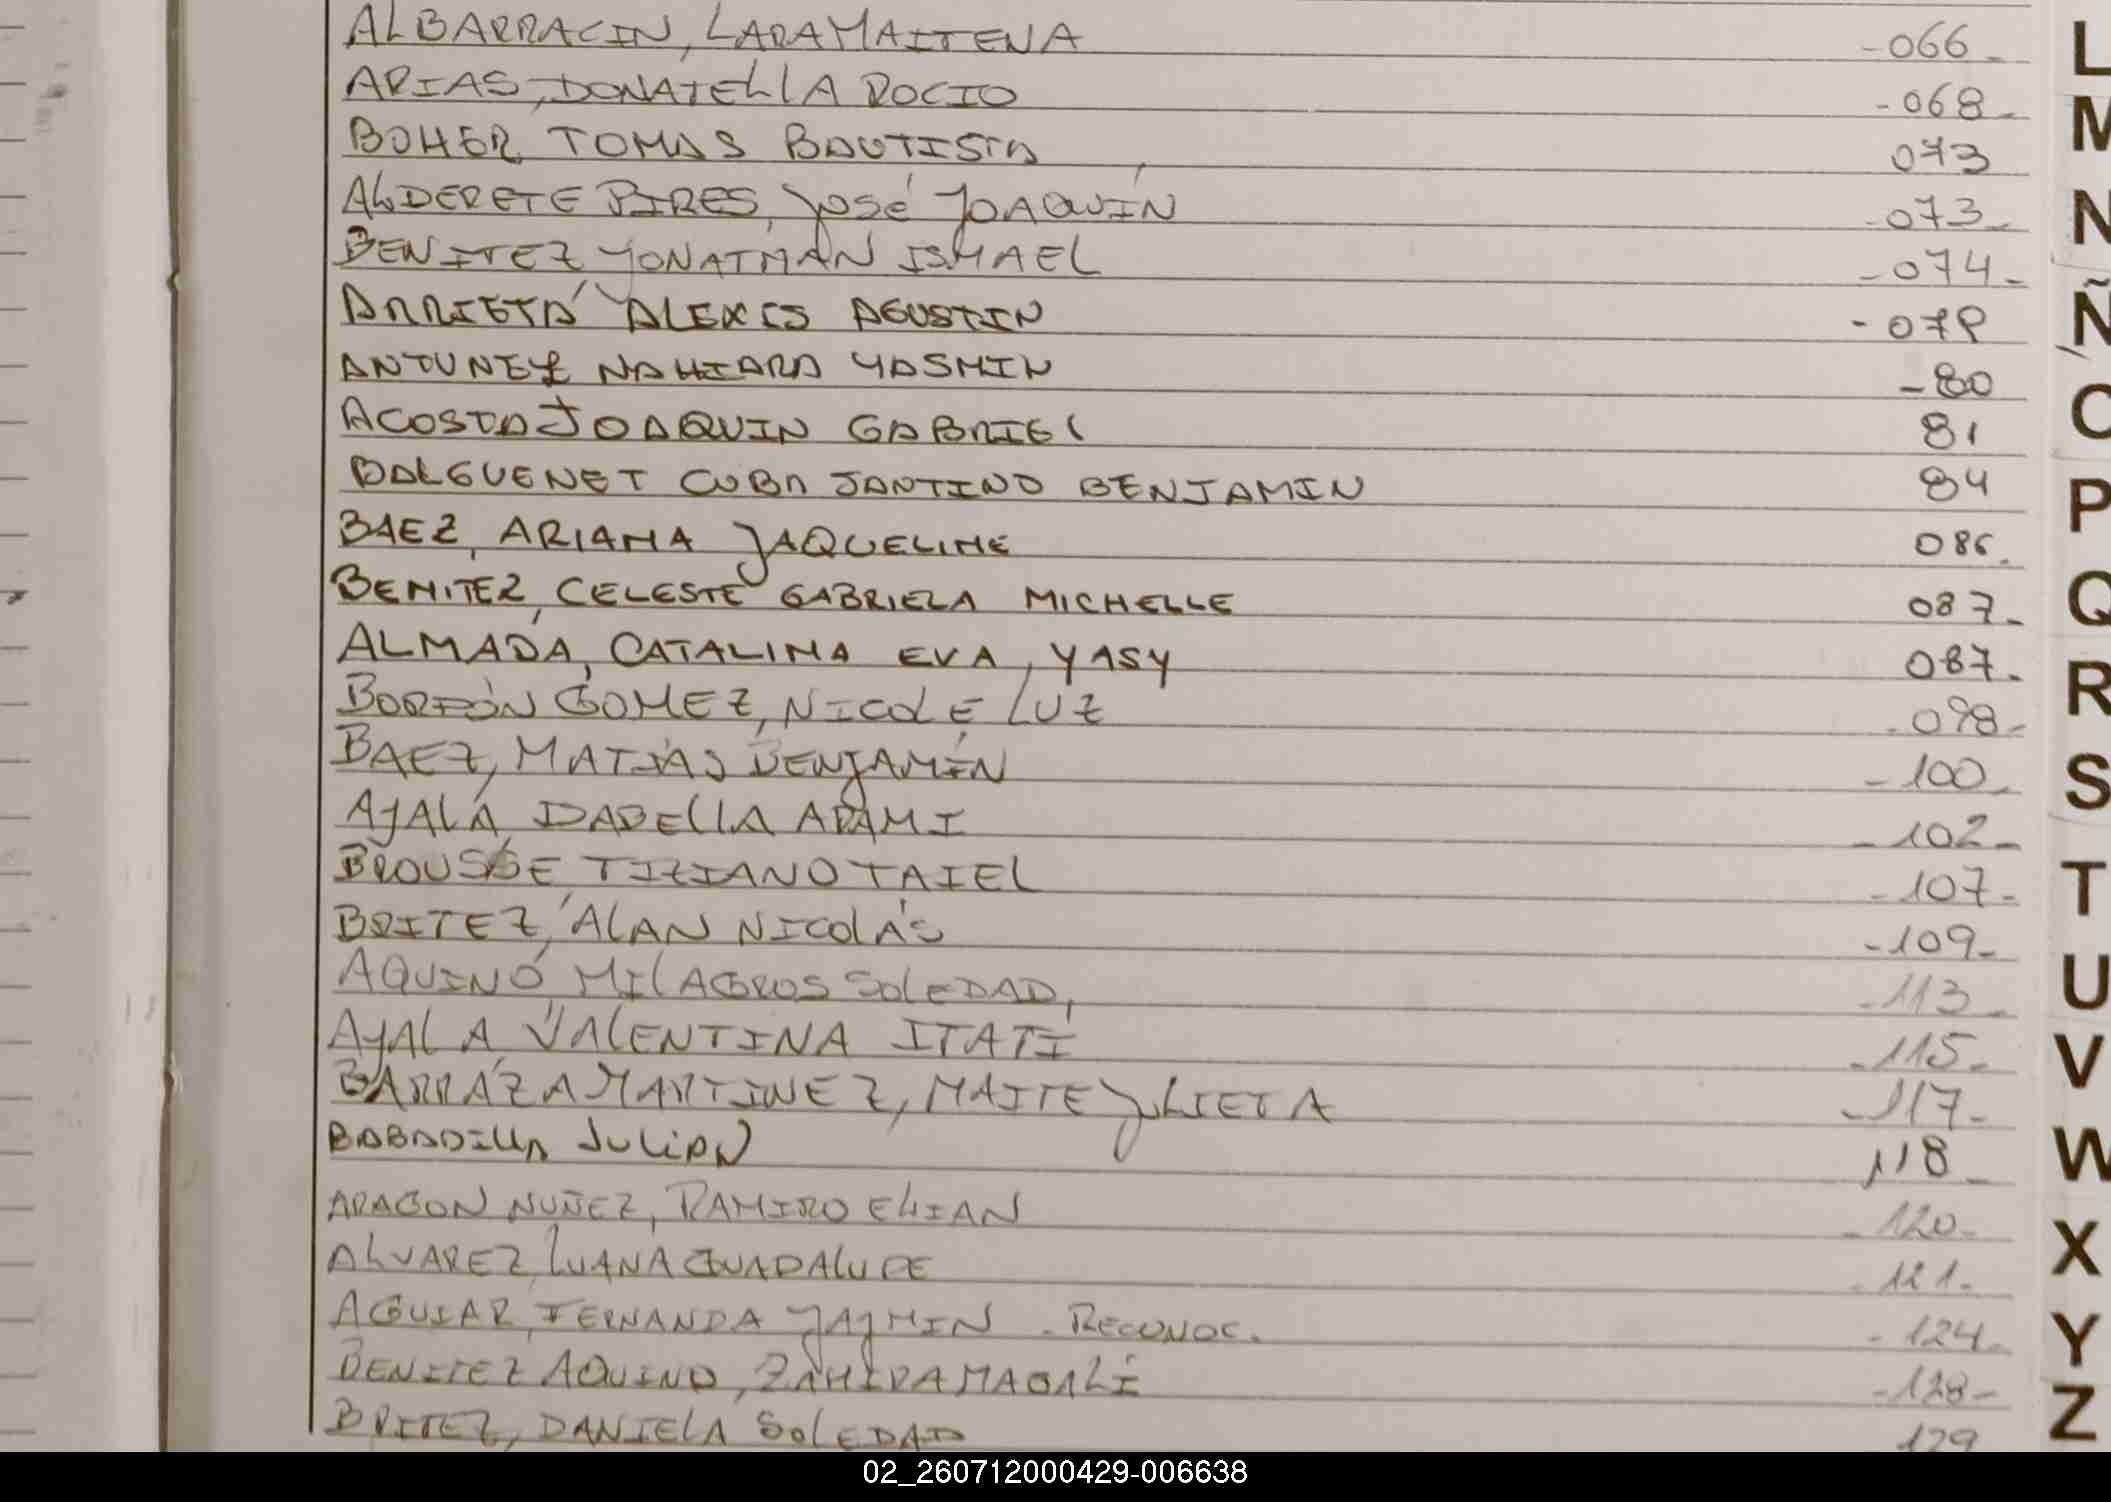 ALBARRACIN, LARA MAITENA -066-
ARIAS, DONATELLA ROCIO -068-
BOHER, TOMAS BAUTISTA 073
ALDERETE PIRES, JOSÉ JOAQUÍN -073-
BENITEZ YONATHAN ISMAEL -074-
ARRIETA ALEXIS AGUSTIN -079
ANTUNEZ NAHIARA YASMIN -80
ACOSTA JOAQUIN GABRIEL 81
BALGUENET CUBA SANTINO BENJAMIN 84
BAEZ, ARIANA JAQUELINE 086.
BENITEZ, CELESTE GABRIELA MICHELLE 087-
ALMADA, CATALINA EVA, YASY 087-
BORDÓN GOMEZ, NICOLE LUZ -098-
BAEZ, MATÍAS BENJAMÍN -100-
AYALA, ISABELLA ARAMI -102-
BROUSSE, TIZIANO TAIEL -107-
BRITEZ, ALAN NICOLÁS -109-
AQUINO MILAGROS SOLEDAD, -113-
AYALA, VALENTINA ITATÍ -115-
BARRAZA MARTINEZ, MAITE JULIETA -117-
BOBADILLA JULIAN 118-
ARAGON NUÑEZ, RAMIRO ELIAN -120-
ALVAREZ, LUANA GUADALUPE -121-
AGUIAR, FERNANDA JAZMIN - RECONOC. -124-
BENITEZ AQUINO, ZAHIRA MAGALÍ -128-
BRITEZ, DANIELA SOLEDAD 129
L
M
N
Ñ
O
P
Q
R
S
T
U
V
W
X
Y
Z
02_260712000429-006638